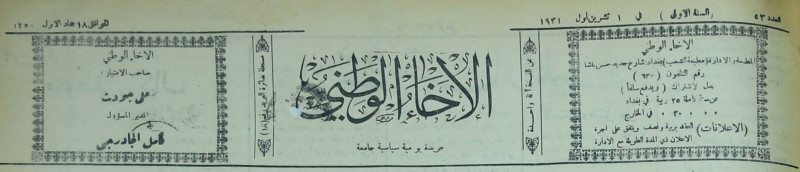 العدد ٥٣ (السنة الاولى) في ١ تشرين اول ١٩٣١ الموافق ١٨ جماد الاول ١٣٥٠
الاخاء الوطني
المطبعة والادارة (مطبعة الشعب) بغداد شارع جديد حسن باشا
رقم التلفون (٦٣٠)
بدل الاشتراك (ويدفع سلفاً)
عن سنة كاملة ٢٥ ربية في بغداد
٣٠ في الخارج
(الاعلانات) العقد بربية ونصف ويتفق على اجرة
الاعلان ذي المدة الطويلة مع الادارة
ثمن النسخة آنة واحدة
الاخاء الوطني
جريدة يومية سياسية جامعة
الاخاء الوطني
صاحب الامتياز
علي جودت
المدير المسؤول
كامل الجادرجي